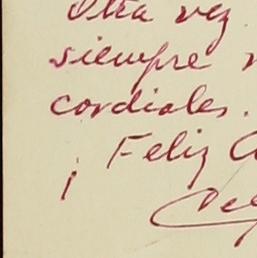 Otra vez
siempre
cordiales.
¡ Feliz